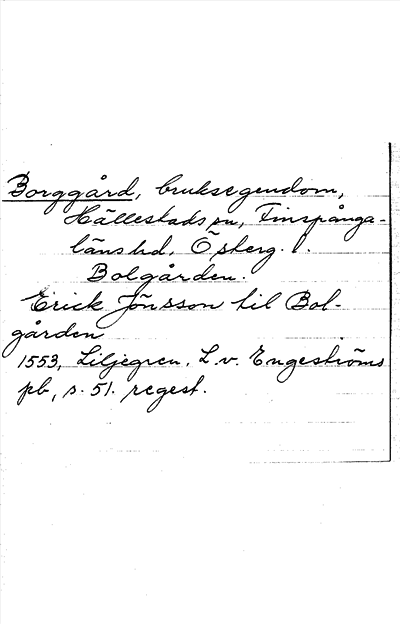 Borggård, bruksegendom,
Hällestads sn, Finspånga-
läns hd, Ösherg. l.
Bolgården.
Erick Jönsson till Bol-
gården
1553, Liljegren, L. v. Engeströms
pb, s. 51. regest.